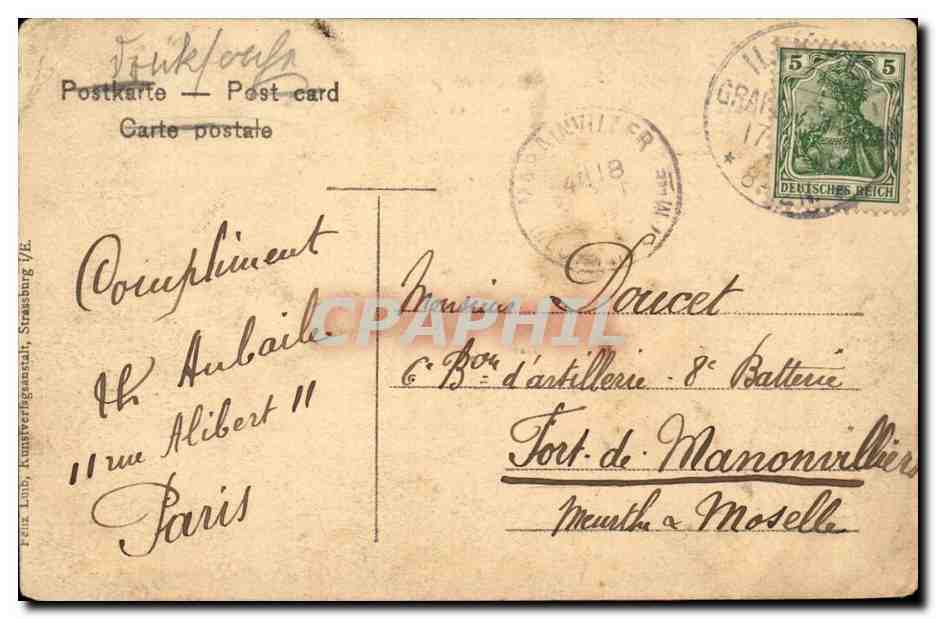 Drucksache
Postkarte — Post card
Carte postale
MARAINVILLER
18
GRA
17
8
5 5
DEUTSCHES REICH
Compliment
Th Aubaile
11 rue Alibert 11
Paris
Monsieur Doucet
6e Bon d'artillerie - 8e Batterie
Fort de Manonvilliers
Meurthe & Moselle
Felix Luib, Kunstverlagsanstalt, Strassburg i/E.
CPAPHIL